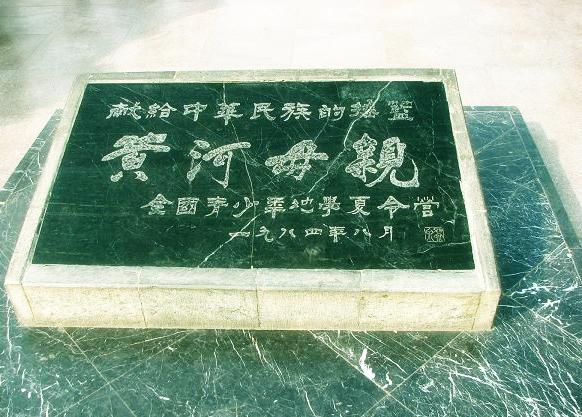 献給中華民族的摇籃
黄河母親
全國青少年地學夏令营
一九八四年八月